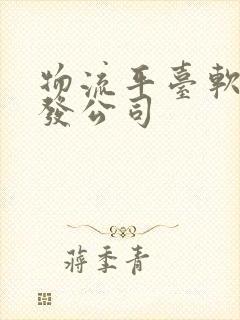 物流平臺軟
發公司
蔣季青